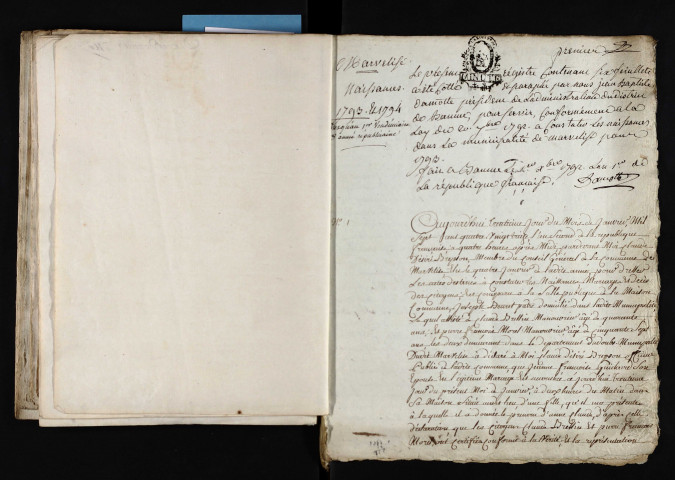 premier
Marvelise
Naissances
1793 & 1794
Le présent registre contenant six feuillets
a été cotté et paraphé par nous jean baptiste
Damotte président de l'administration du district
de Baume, pour servir conformement a la
Loy du 20 7bre 1792 a constater les naissances
dans la municipalité de marvelise pour
1793.
fait a Baume le 1792 L'an 1er de
La république française.
MINUTE
No 1
Aujourd'hui trentieme jour du Mois de Janvier Mil
Sept Cent quatre Vingt treize, l'an second de la republique
française a quatre heures après Midi, pardevant Moi Claude
Désiré Membre du Conseil Général de la Commune de
Marvelise élu le quatre Janvier de la dite année, pour dresser
Les actes destinés à constater les Naissances, Mariages et décès
des citoyens, est comparu à la Salle publique de la Maison
Commune, Joseph domicilié dans la dite Municipalité
Lequel assisté de Claude Manouvrier agé de quarante
ans, et pierre françois Morel Manouvrier agé de cinquante Sept
ans, les deux demeurant dans le département du doubs Municipalité
Dudit Marvelise a déclaré à Moi Claude désiré officier
Public de la dite Commune, que Jeanne Françoise Son
Epouse en légitime Mariage est accouchée, ce jourd'hui trentieme
Jour du présent Mois de Janvier, à deux heures du Matin dans
Sa Maison Située audit lieu d'une fille, qu'il me présente
à laquelle il a donné le prenom d'anne claude, d'après cette
déclaration que les citoyens Claude et pierre françois
Morel ont certifiée conforme à la Vérité, et la représentation